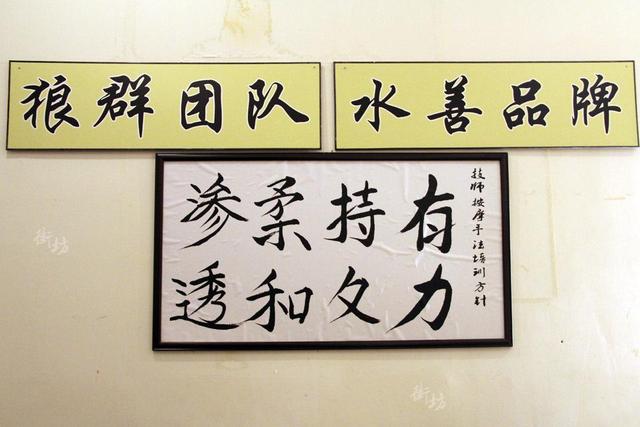 狼群团队
水善品牌
技师按摩手法培训方针
有力
持久
柔和
渗透
街坊
街坊